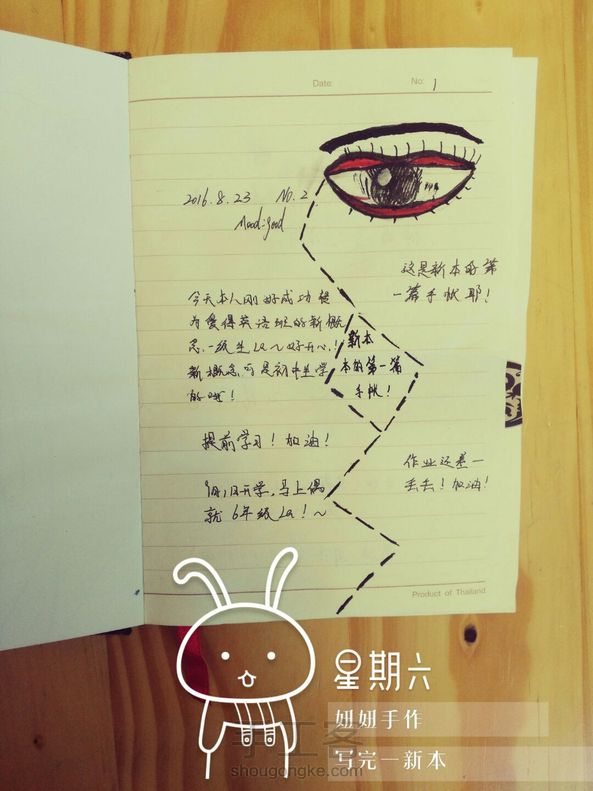 Date:
No: 1
2016.8.23 No.2
Mood:good
这是新本的第
一篇手帐耶！
今天本人刚好成功想
为爱得英语班的新概
念,一级生La～好开心！
新概念可是初中生学
的哦！
新本
本的第一篇
手帐！
提前学习！加油！
作业还差一
丢丢！加油！
9月1日开学,马上偶
就6年级La！～
Product of Thailand
星期六
妞妞手作
写完一新本
手工客
shougongke.com